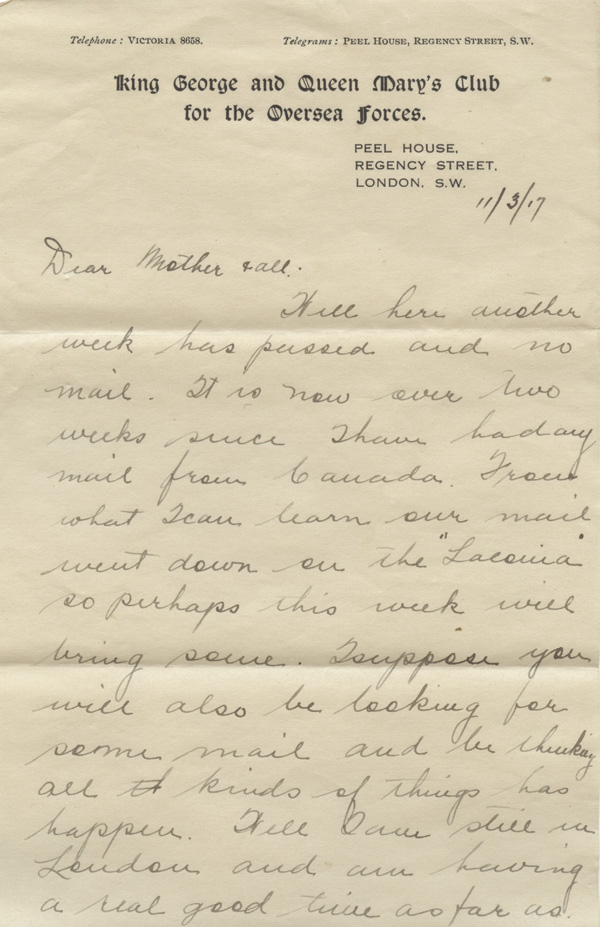 Telephone: VICTORIA 8658. Telegrams: PEEL HOUSE, REGENCY STREET, S.W.
King George and Queen Mary's Club
for the Oversea Forces.
PEEL HOUSE,
REGENCY STREET,
LONDON. S.W.
11/3/17
Dear Mother & all.
Well here another
week has passed and no
mail. It is now over two
weeks since I have had any
mail from Canada. From
what I can learn our mail
went down on the "Laconia"
so perhaps this week will
bring some. I suppose you
will also be looking for
some mail and be thinking
all kinds of things has
happen. Well I am still in
London and am having
a real good time as far as.